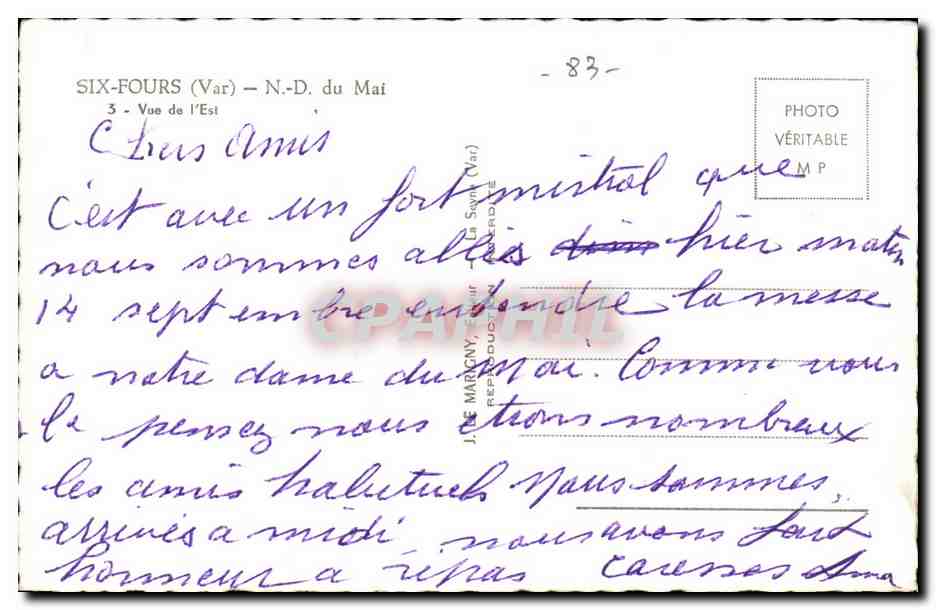 - 83 -
SIX-FOURS (Var) — N.-D. du Mai
3 - Vue de l'Est
PHOTO
VÉRITABLE
M P
J. DE MARIGNY, Editeur — La Seyne (Var)
REPRODUCTION INTERDITE
CPAPHIL
Chers Amis
C'est avec un fort mistral que
nous sommes allés hier matin
14 septembre entendre la messe
a notre dame du Mai. Comme vous
le pensez nous etions nombreux
les amis habituels Nous sommes
arrivés a midi nous avons fait
honneur a repas Caresses